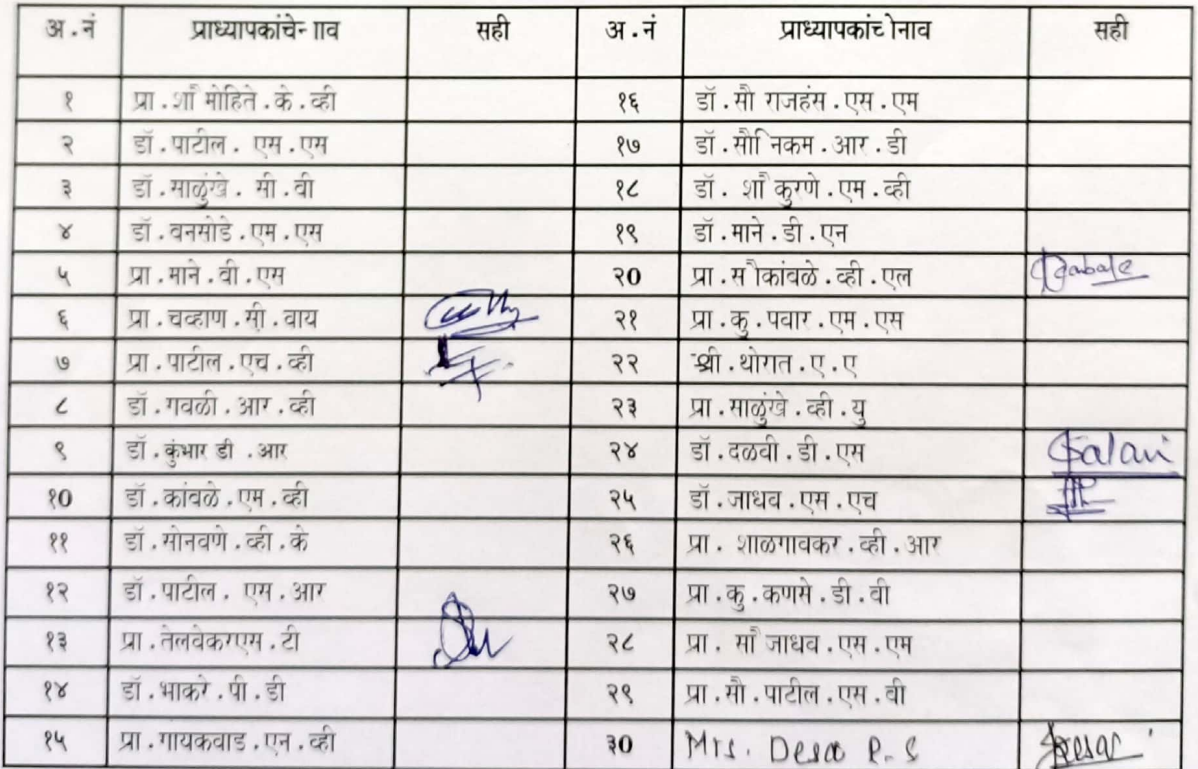 अ.नं प्राध्यापकांचे नाव सही अ.नं प्राध्यापकांचे नाव सही
१ प्रा.सौ मोहिते.के.व्ही १६ डॉ.सौ राजहंस.एस.एम
२ डॉ पाटील. एम.एस १७ डॉ.सौ निकम.आर.डी
३ डॉ.साळुंखे. सी.बी १८ डॉ. सौ कुरणे.एम.व्ही
४ डॉ.वनसोडे.एम.एस १९ डॉ.माने.डी.एन
५ प्रा.माने.बी.एस २0 प्रा.सौ कांबळे.व्ही.एल
६ प्रा.चव्हाण.सी.वाय २१ प्रा.कु.पवार.एम.एस
७ प्रा.पाटील.एच.व्ही २२ श्री.थोरात.ए.ए
८ डॉ.गवळी.आर.व्ही २३ प्रा.साळुंखे.व्ही.यु
९ डॉ.कुंभार डी.आर २४ डॉ.दळवी.डी.एस
१0 डॉ.कांबळे.एम.व्ही २५ डॉ.जाधव.एस.एच
११ डॉ.सोनवणे.व्ही.के २६ प्रा. शाळगावकर.व्ही.आर
१२ डॉ.पाटील. एम.आर २७ प्रा.कु.कणसे.डी.बी
१३ प्रा.तेलवेकर एस.टी २८ प्रा. सौ जाधव.एस.एम
१४ डॉ.भाकरे.पी.डी २९ प्रा.सौ.पाटील.एस.बी
१५ प्रा.गायकवाड.एन.व्ही ३0 Mrs. Desai R.S